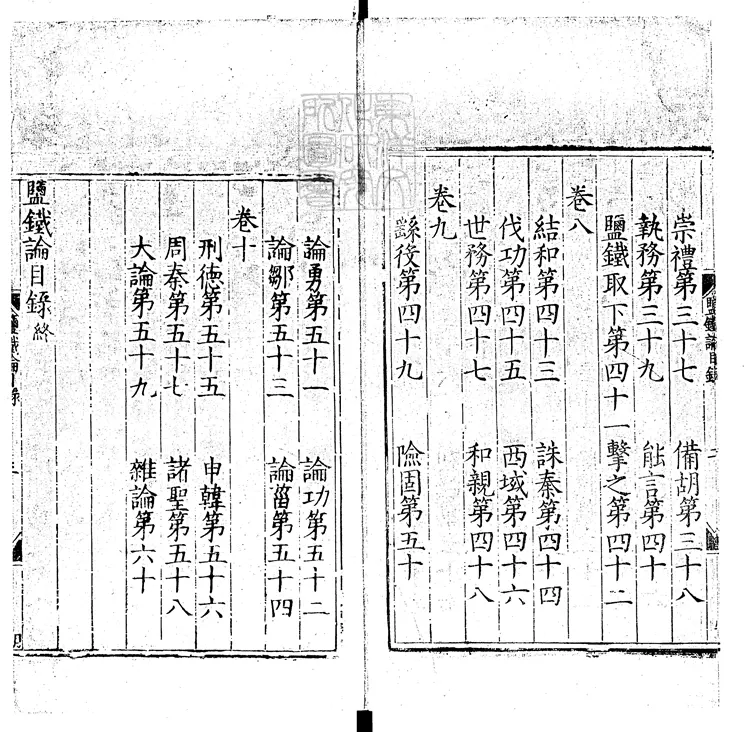 崇禮第三十七　備胡第三十八
執務第三十九　能言第四十
鹽鐵取下第四十一擊之第四十二
卷八
結和第四十三　誅秦第四十四
伐功第四十五　西域第四十六
世務第四十七　和親第四十八
卷九
繇役第四十九　險固第五十
論勇第五十一　論功第五十二
論鄒第五十三　論菑第五十四
卷十
刑德第五十五　申韓第五十六
周秦第五十七　諸聖第五十八
大論第五十九　雜論第六十
鹽鐵論目錄終
鹽鐵論目錄